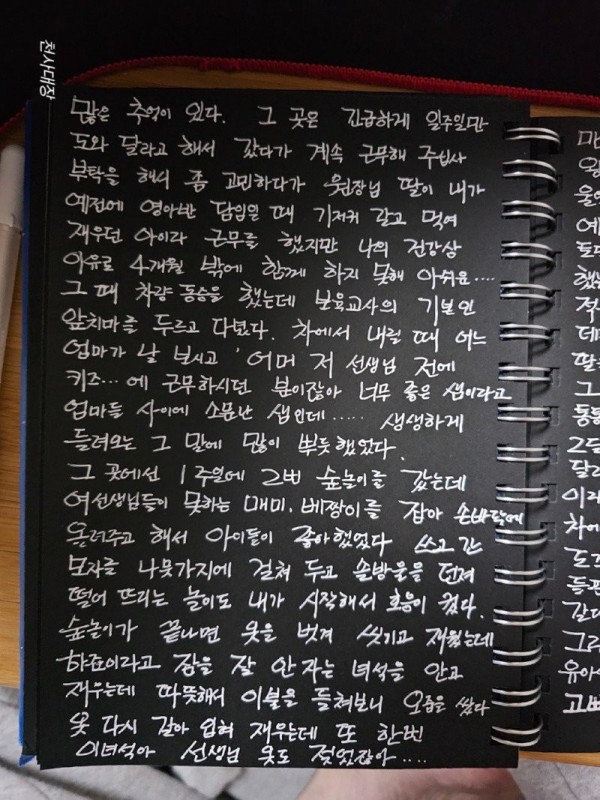 천사대장
많은 추억이 있다. 그 곳은 긴급하게 일주일만
도와 달라고 해서 갔다가 계속 근무해 주십사
부탁을 해서 좀 고민하다가 원장님 딸이 내가
예전에 영아반 담임일 때 기저귀 갈고 먹여
재우던 아이라 근무를 했지만 나의 건강상
이유로 4개월 밖에 함께 하지 못해 아쉬운....
그 때 차량 동승을 했는데 보육교사의 기본인
앞치마를 두르고 다녔다. 차에서 내릴 때 어느
엄마가 날 보시고 '어머 저 선생님 전에
키즈... 에 근무하시던 분이잖아 너무 좋은 샘이라고
엄마들 사이에 소문난 샘인데..... 생생하게
들려오는 그 말에 많이 뿌듯했었다.
그 곳에선 1주일에 2번 숲놀이를 갔는데
여선생님들이 못하는 매미. 베짱이를 잡아 손바닥에
올려주고 해서 아이들이 좋아했었다 쓰고 간
모자를 나뭇가지에 걸쳐 두고 솔방울을 던져
떨어 뜨리는 놀이도 내가 시작해서 호응이 컸다.
숲놀이가 끝나면 옷을 벗겨 씻기고 재웠는데
하준이라고 잠을 잘 안 자는 녀석을 안고
재우는데 따뜻해서 이불을 들쳐보니 오줌을 쌌다
옷 다시 갈아 입혀 재우는데 또 한번
이녀석아 선생님 옷도 젖었잖아....